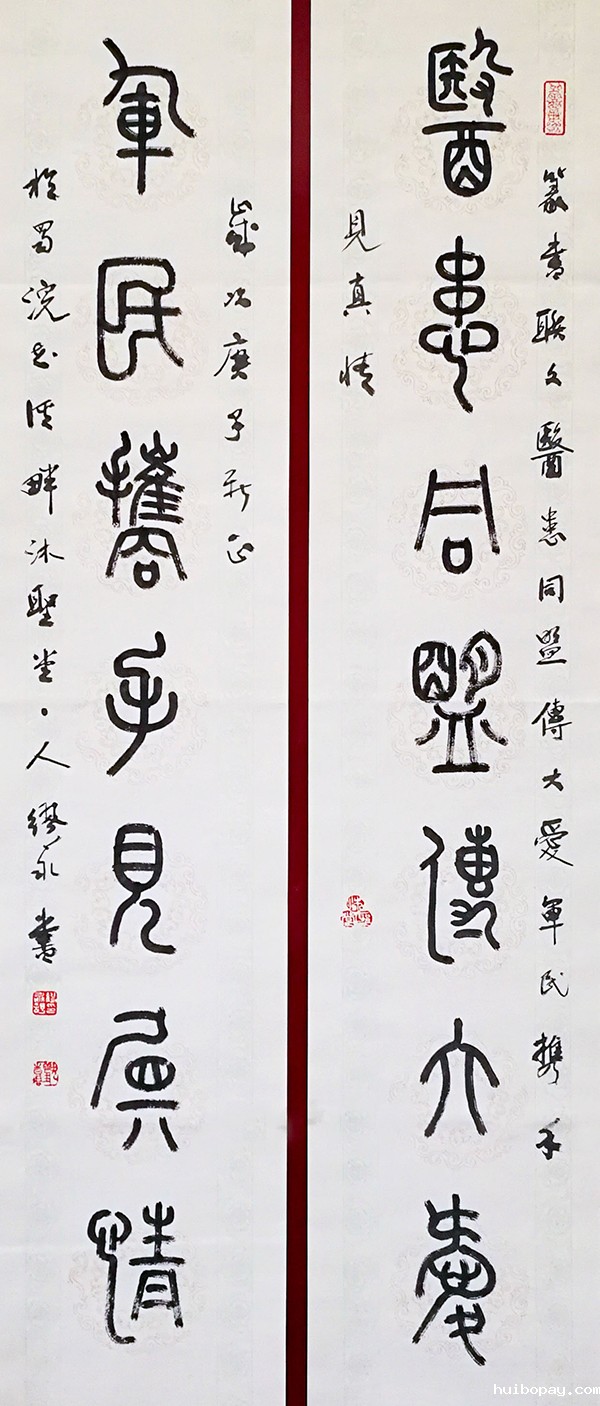 篆書联文醫患同盟傳大愛軍民携手
醫患同盟傳大愛
見真情
歲次庚子新正
軍民攜手見真情
於蜀浣花溪畔沐聖堂主人繆永書
huibopay.com